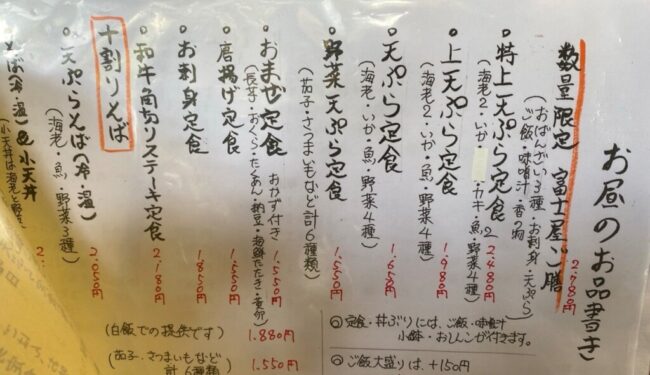 お昼のお品書き
数量限定 富士屋ご膳 2.780円
(おばんざい3種・お刺身・天ぷら
ご飯・味噌汁・香の物)
○特上天ぷら定食 2.480円
(海老2・いか・カキ・魚・野菜4種)
○上天ぷら定食 1.980円
(海老2・いか・魚・野菜4種)
○天ぷら定食 1.650円
(海老・いか・魚・野菜4種)
○野菜天ぷら定食 1.550円
(茄子・さつまいもなど計6種類)
○おまぜ定食 おかず付き 1.550円
(長芋・おくら・たくあん・納豆・海鮮たたき・黄卵)
○唐揚げ定食 1.550円
○お刺身定食 1.850円
○和牛角切りステーキ定食 2.180円
十割りそば
○天ぷらそば(冷・温) 2.050円
(海老・魚・野菜3種)
そば(冷・温)&小天丼
(小天丼は海老と野菜
(白飯での提供です) 1.880円
(茄子、さつまいもなど
計6種類) 1.550円
◎定食・丼ぶりには、ご飯・味噌汁
小鉢・おしんこが付きます。
◎ご飯大盛りは、+150円